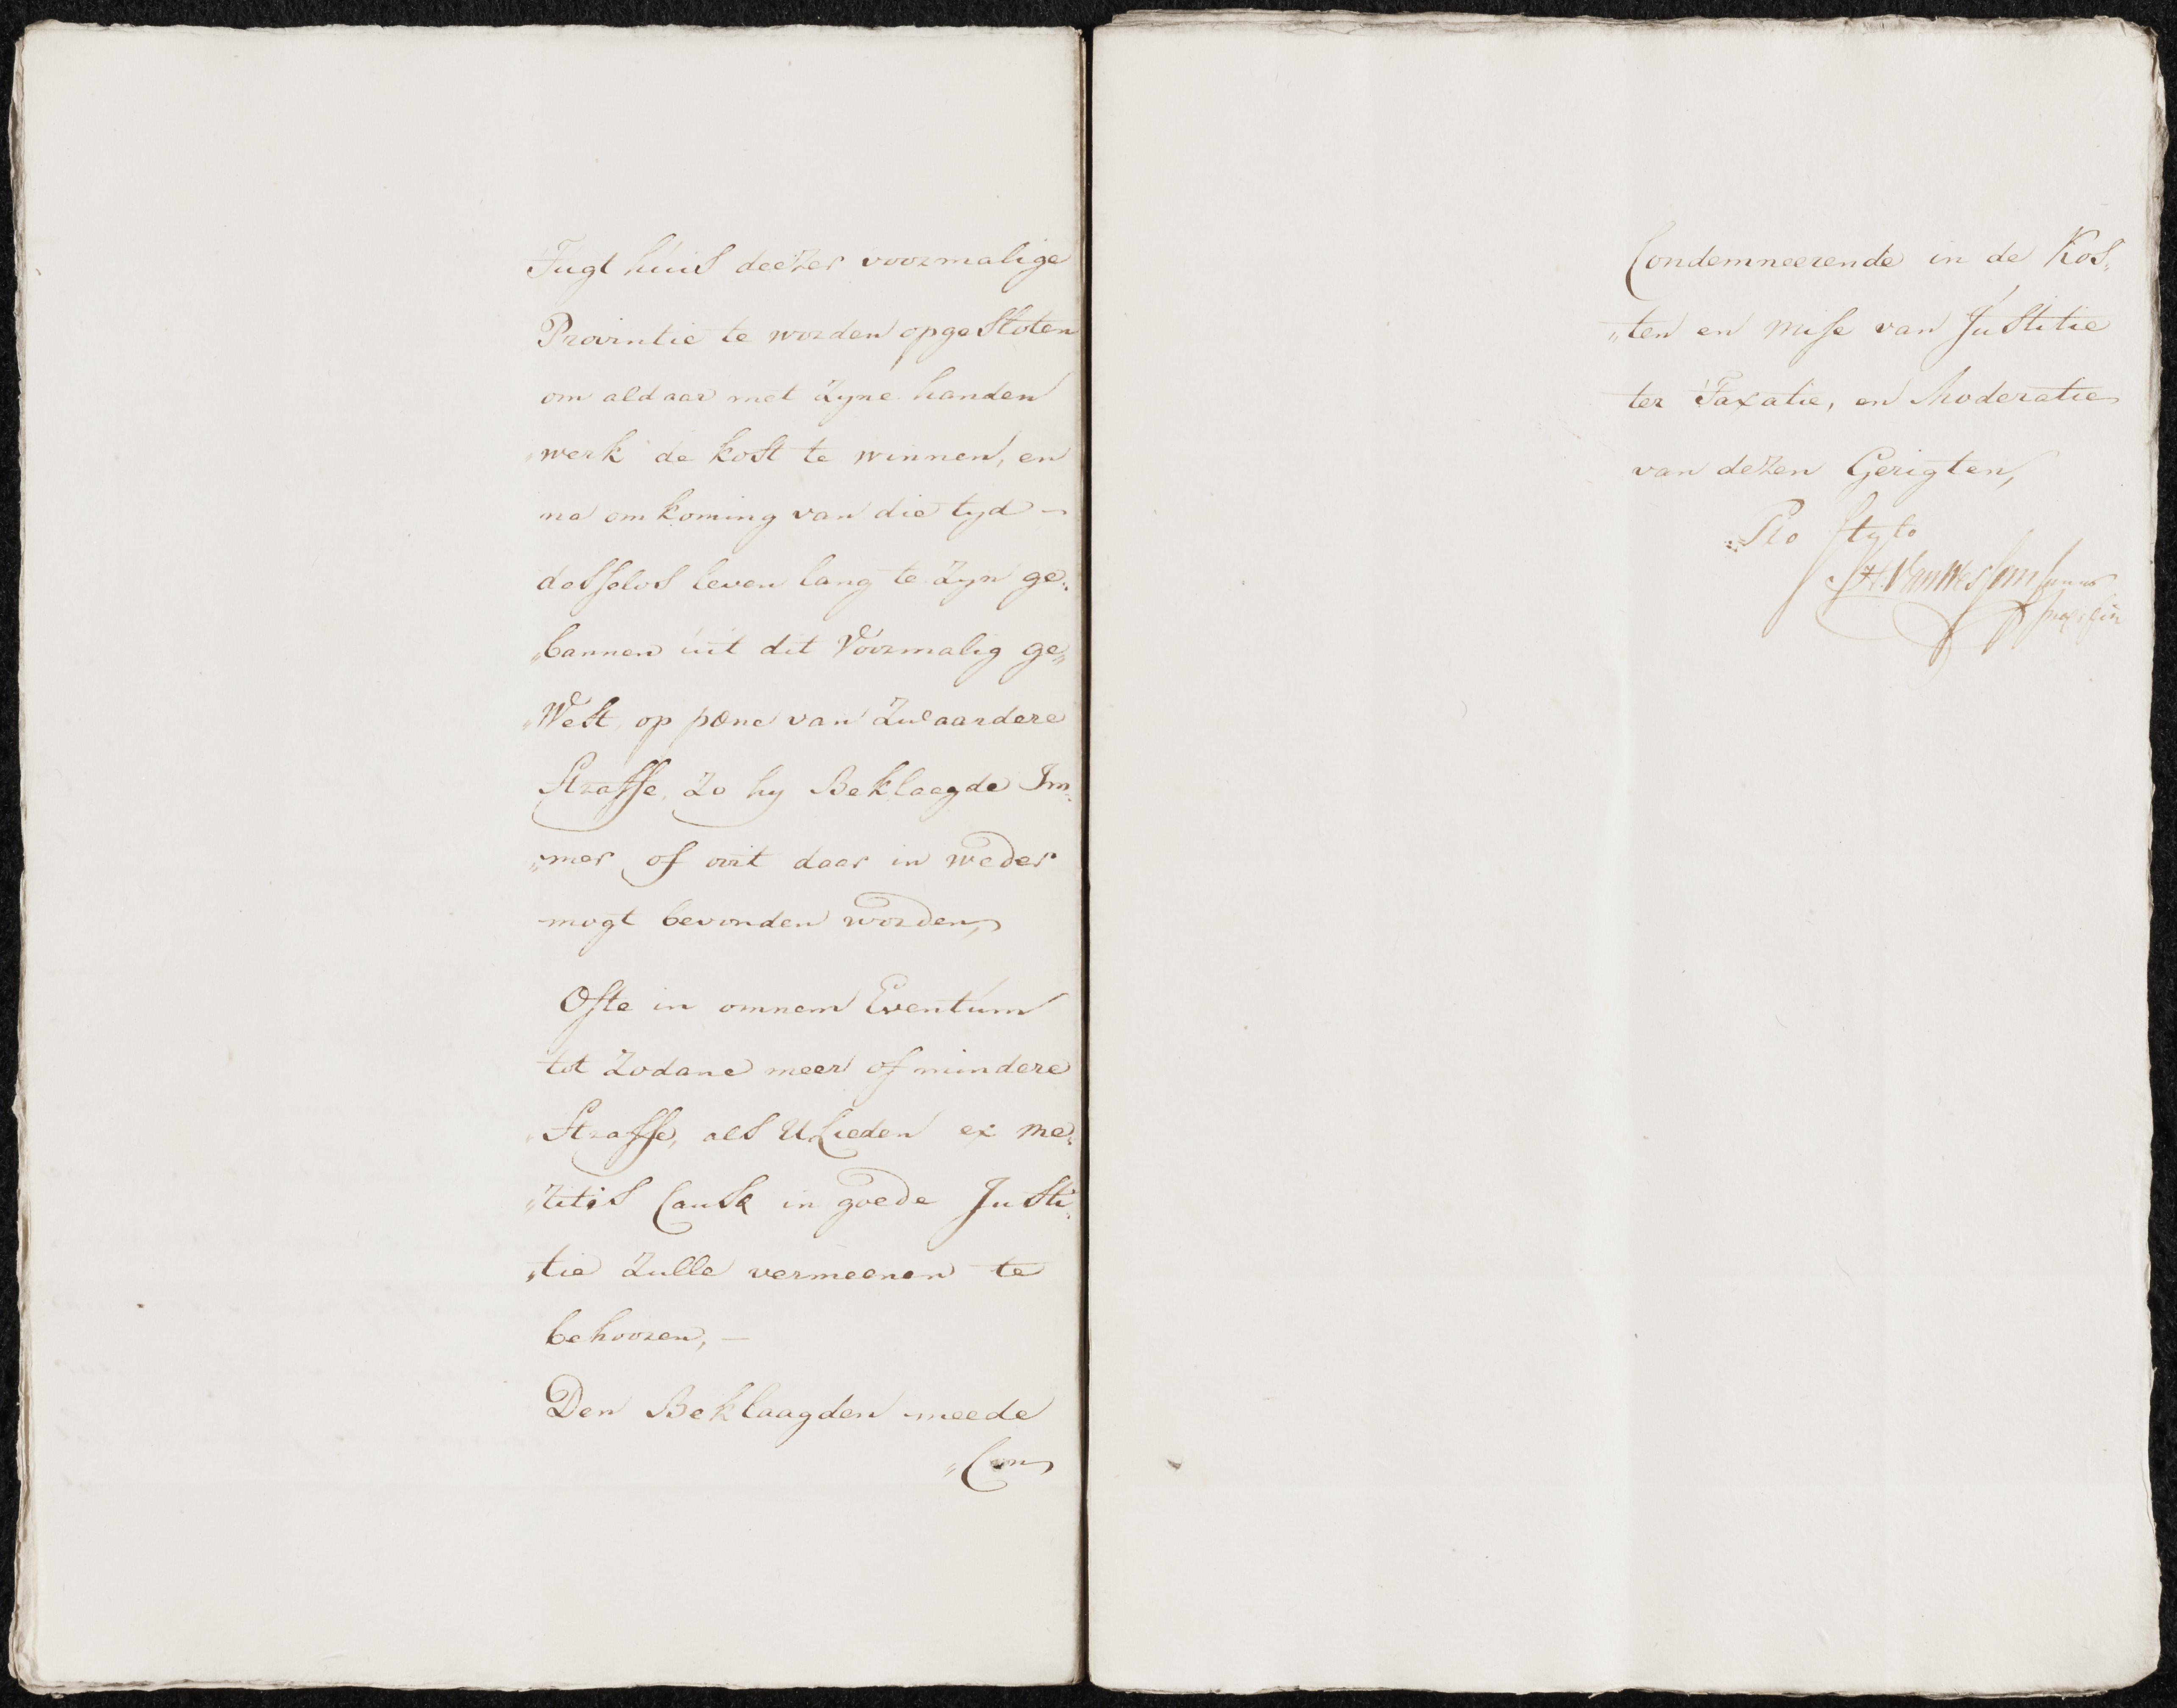 Tugt huis deezer voormalige
Provintie te worden opgesloten
om aldaar met Zyne handen
werk de kost te winnen, en
na omkoming van die tyd –
desselvs leven lang te Zyn ge„
„bannen uit dit Voormalig ge„
„West, op pœne van Zwaardere
Straffe, Zo hy Beklaagde Im„
„mer of ooit daar in weder
mogt bevonden worden,
Ofte in omnem Eventum
tot Zodane meer of mindere
Straffe, als ULieden ex me„
„ritis Causæ in goede Justi„
„tie Zulle vermeenen te
behooren, –
Den Beklaagden meede
„Con
Condemneerende in de Kos„
„ten en mise van Justitie
ter Taxatie, en Moderatie
van dezen Gerigten,
Pro Stylo